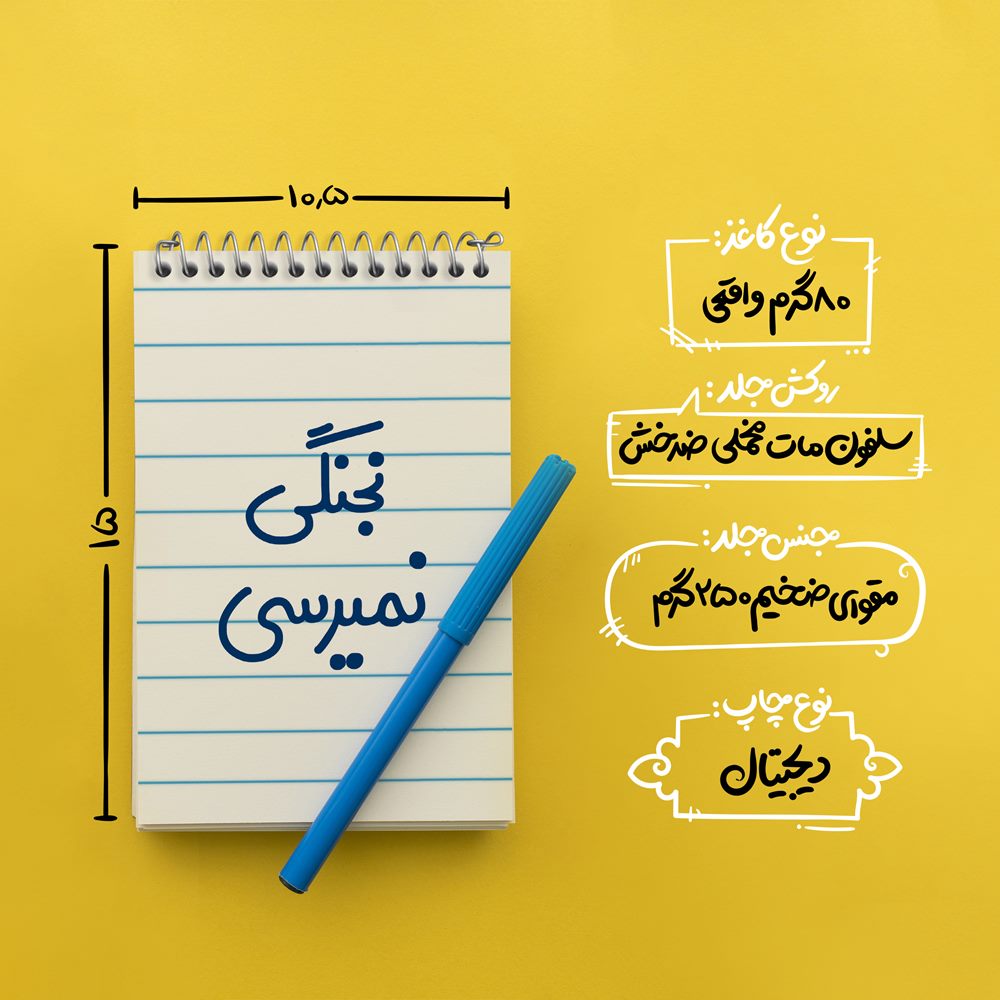 ۱۰٫۵
۱۵
نجنگی
نمیرسی
نوع کاغذ:
۸۰گرم واقعی
روکش جلد:
سلفون مات مخملی ضدخش
جنس جلد:
مقوای ضخیم ۲۵۰گرم
نوع چاپ:
دیجیتال